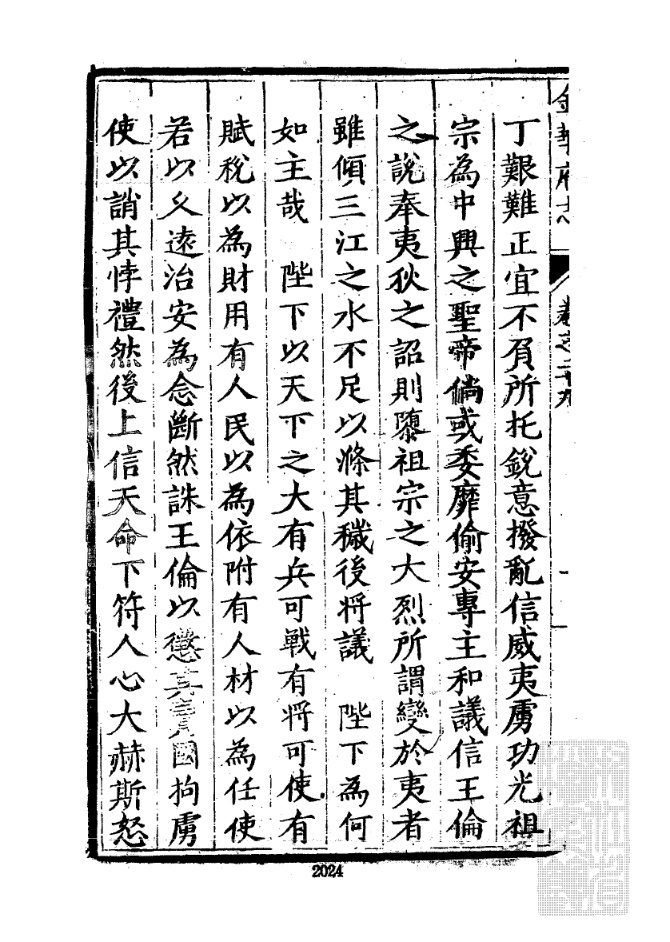 金華府志 卷之二十九
丁艱難正宜不負所托銳意撥亂信威夷虜功光祖
宗為中興之聖帝倘或委靡偷安專主和議信王倫
之說奉夷狄之詔則隳祖宗之大烈所謂變於夷者
雖傾三江之水不足以滌其穢後將議 陛下為何
如主哉 陛下以天下之大有兵可戰有将可使有
賦稅以為財用有人民以為依附有人材以為任使
若以久遠治安為念斷然誅王倫以懲其賣國拘虜
使以誚其悖禮然後上信天命下符人心大赫斯怒
2024